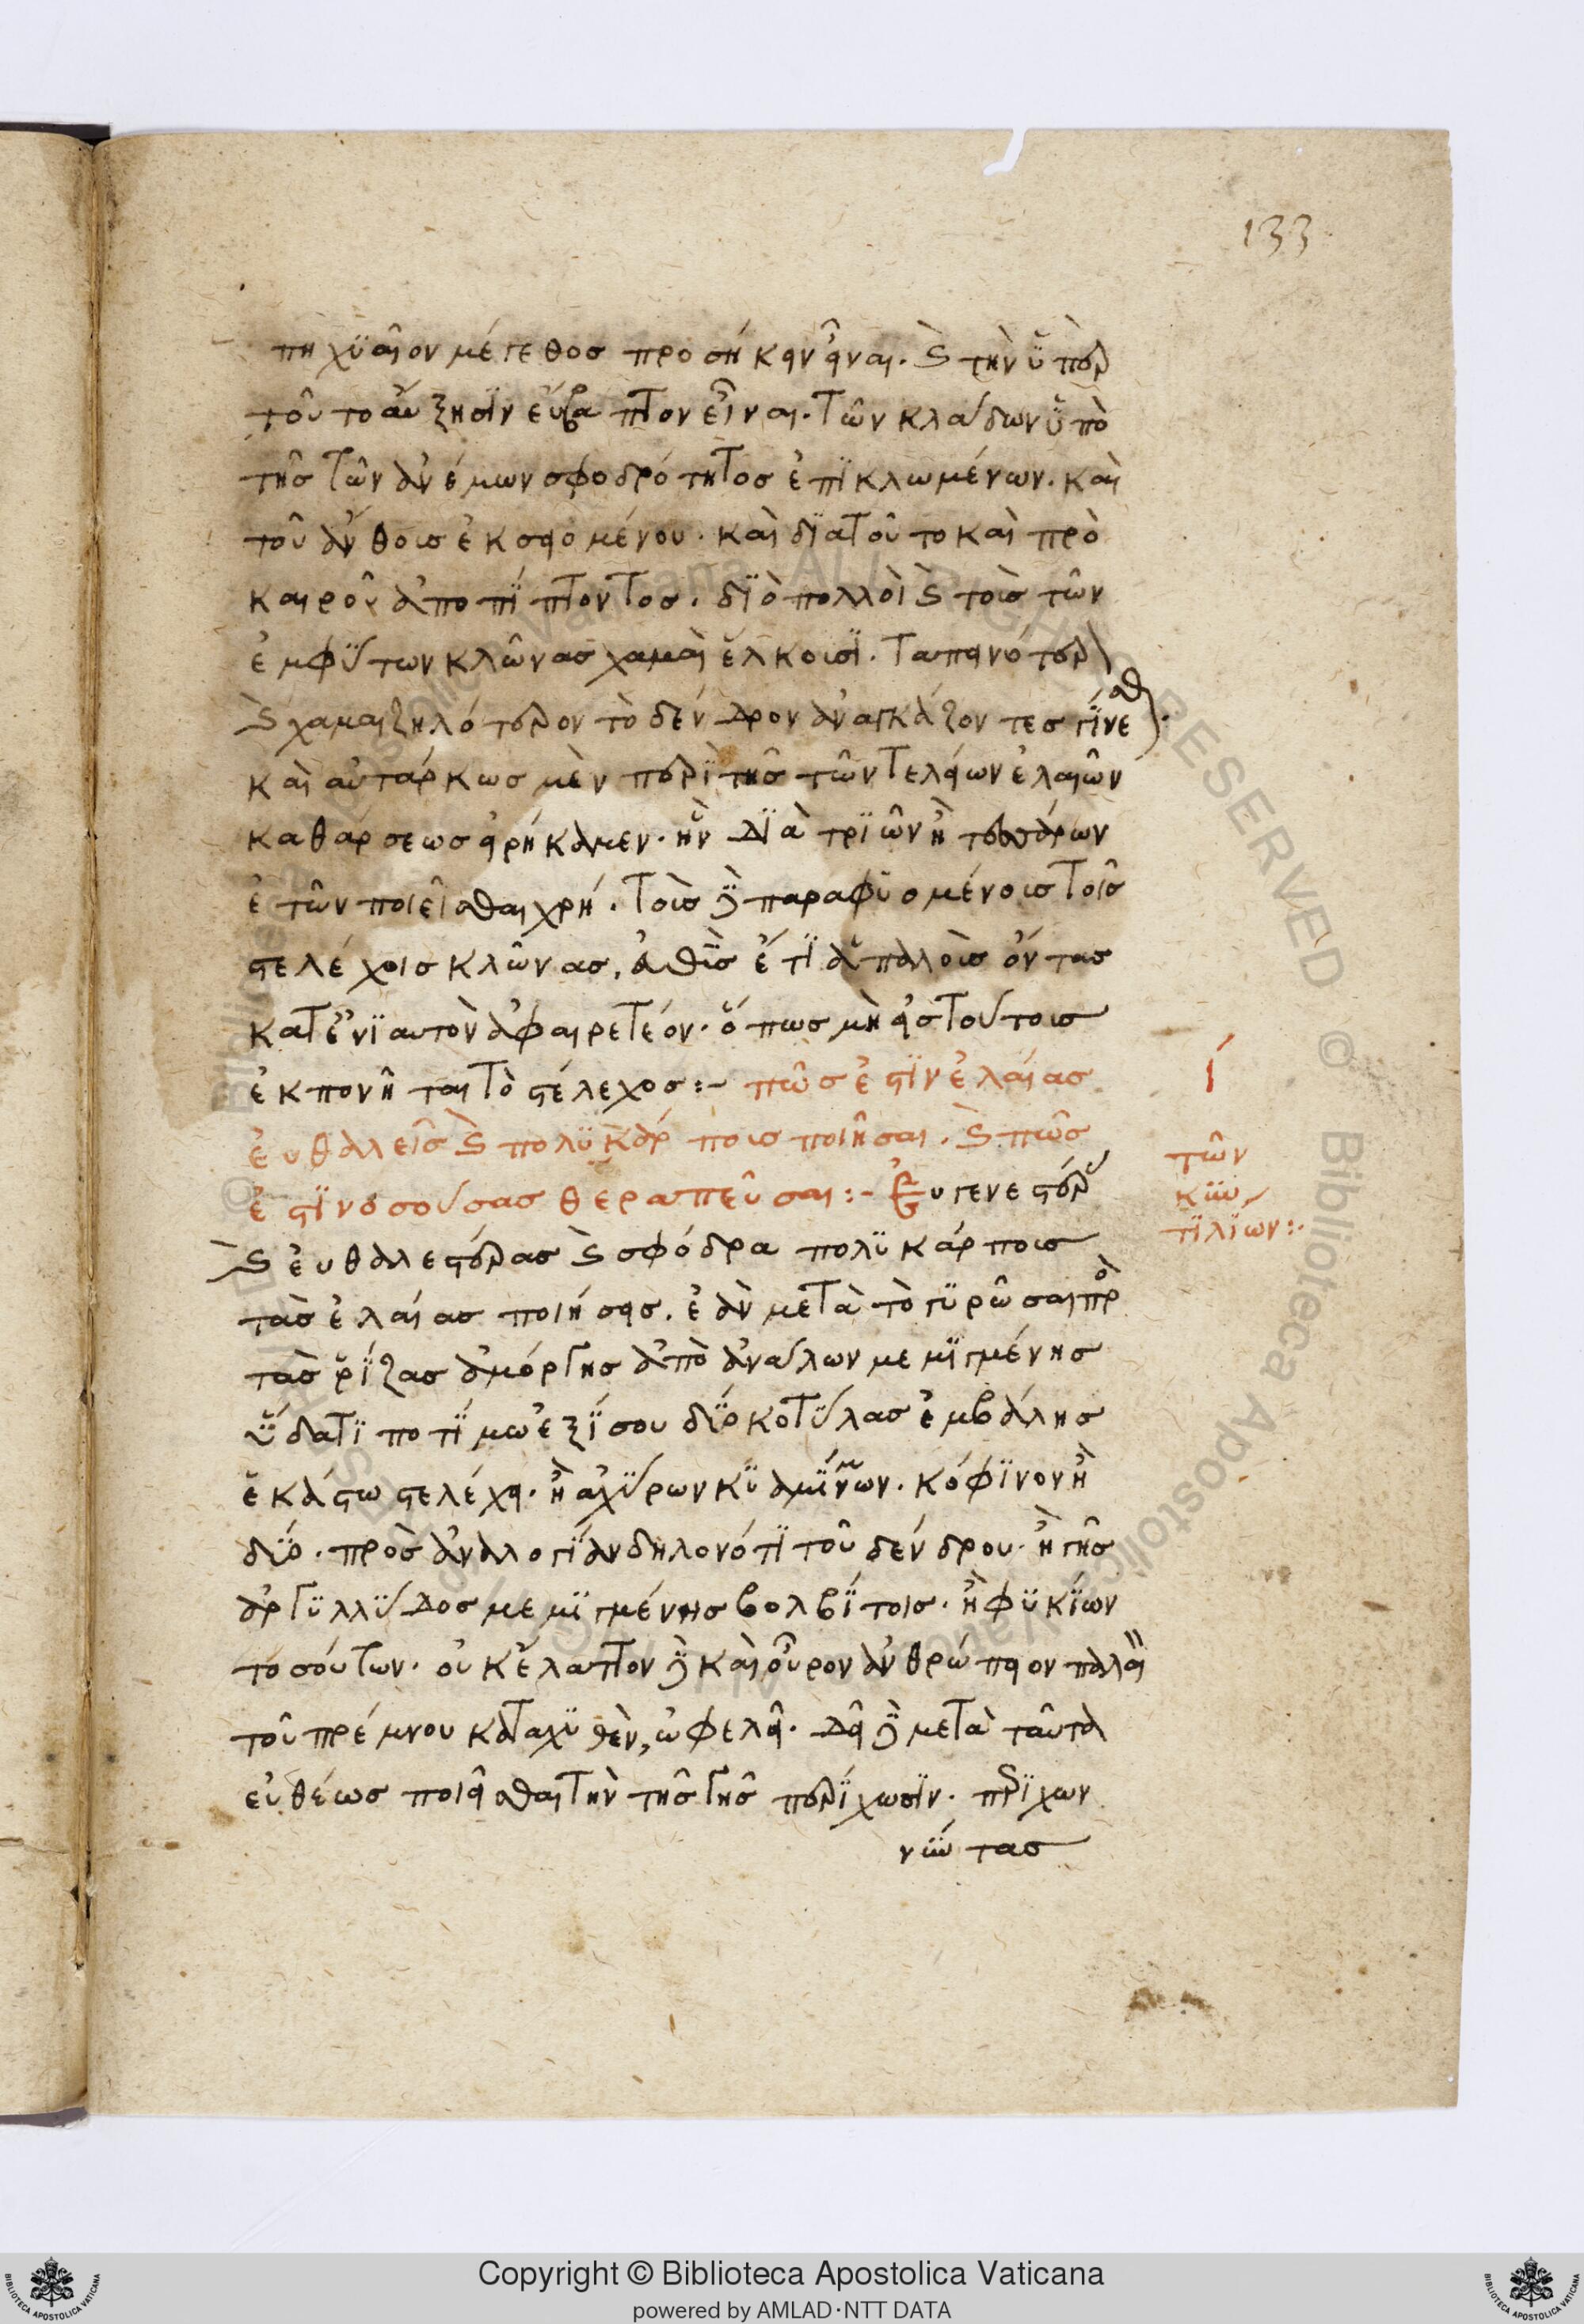 133
πηχϋαῖον μέγεθος προσήκειν εἶναι. καὶ τὴν ὑπὲρ
τοῦτο αὔξησϊν εὔβλαπτον εἶναι. τῶν κλάδων ὑπὸ
τῆς τῶν ἀνέμων σφοδρότητος ἐπϊκλωμένων. καὶ
τοῦ ἄνθους ἐκσειομένου. καὶ δϊατοῦτο καὶ πρὸ
καιροῦ ἀποπΐπτοντος. δϊὸ πολλοὶ καὶ τοὺς τῶν
ἐμφΰτων κλῶνας χαμαὶ ἕλκουσϊ. ταπεινότερον
καὶ χαμαιζηλότερον τὸ δένδρον ἀναγκάζοντες γΐνεσθαι.
καὶ αὐτάρκως μὲν περὶ τῆς τῶν τελείων ἐλαιῶν
καθάρσεως εἰρήκαμεν. ἣν δϊὰ τρϊῶν ἢ τεσσάρων
ἐτῶν ποιεῖσθαι χρή. τοὺς δὲ παραφϋομένους τοῖς
στελέχοις κλῶνας, εὐθὺς ἔτϊ ἁπαλοὺς ὄντας
κατενϊαυτὸν ἀφαιρετέον. ὅπως μὴ εἰς τούτους
ἐκπονῆται τὸ στέλεχος:- πῶς ἐστὶν ἐλαίας
εὐθαλεῖς καὶ πολϋκάρπους ποιῆσαι. καὶ πῶς
ἐστὶ νοσούσας θεραπεῦσαι:- Εὐγενεστέρας
καὶ εὐθαλεστέρας καὶ σφόδρα πολϋκάρπους
τὰς ἐλαίας ποιήσεις. ἐὰν μετὰ τὸ γϋρῶσαι πρὸς
τὰς ῥΐζας ἀμόργης ἀπὸ ἀνάλων μεμϊγμένης
ὕδατϊ ποτΐμω ἐξΐσου δΰο κοτΰλας ἐμβάλης
ἑκάστω στελέχει. ἢ ἀχΰρων κϋαμΐνων. κόφϊνον ἢ
δΰο. πρὸς ἀναλογΐαν δηλονότϊ τοῦ δένδρου. ἢ γῆς
ἀργϋλλΰδος μεμϊγμένης βολβΐτοις. ἢ φϋκΐων
τοσούτων. οὐκ ἔλαττον δὲ καὶ οὖρον ἀνθρώπειον παλαιὸν
τοῦ πρέμνου καταχϋθὲν, ὠφελεῖ. δεῖ δὲ μετὰ ταῦτα
εὐθέως ποιεῖσθαι τὴν τῆς γῆς περΐχωσϊν. περϊχων
νΰντας
ί
τῶν
κϋϊν
τϊλΐων:.
Copyright © Biblioteca Apostolica Vaticana
powered by AMLAD·NTT DATA